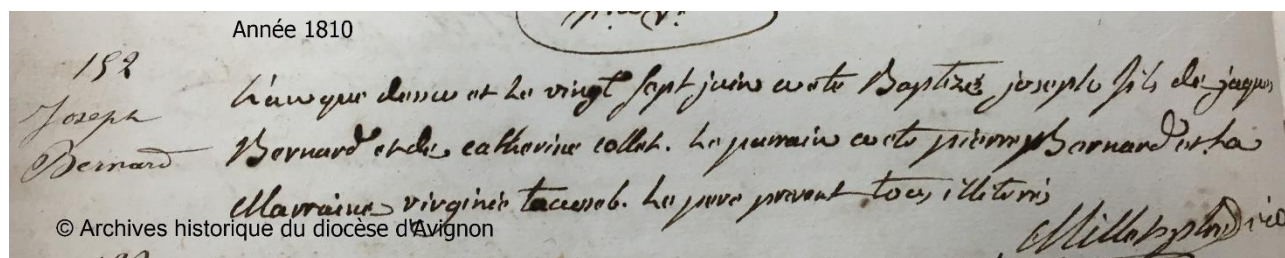 Année 1810
192
Joseph
Bernard
L'an que dessu et Le vingt sept juin a ete Baptizé joseph fils de jaques
Bernard et de catherine collet. Le parrain a ete pierre Bernard et La
Marraine virginie Le pere present tous illiterés
© Archives historique du diocèse d'Avignon